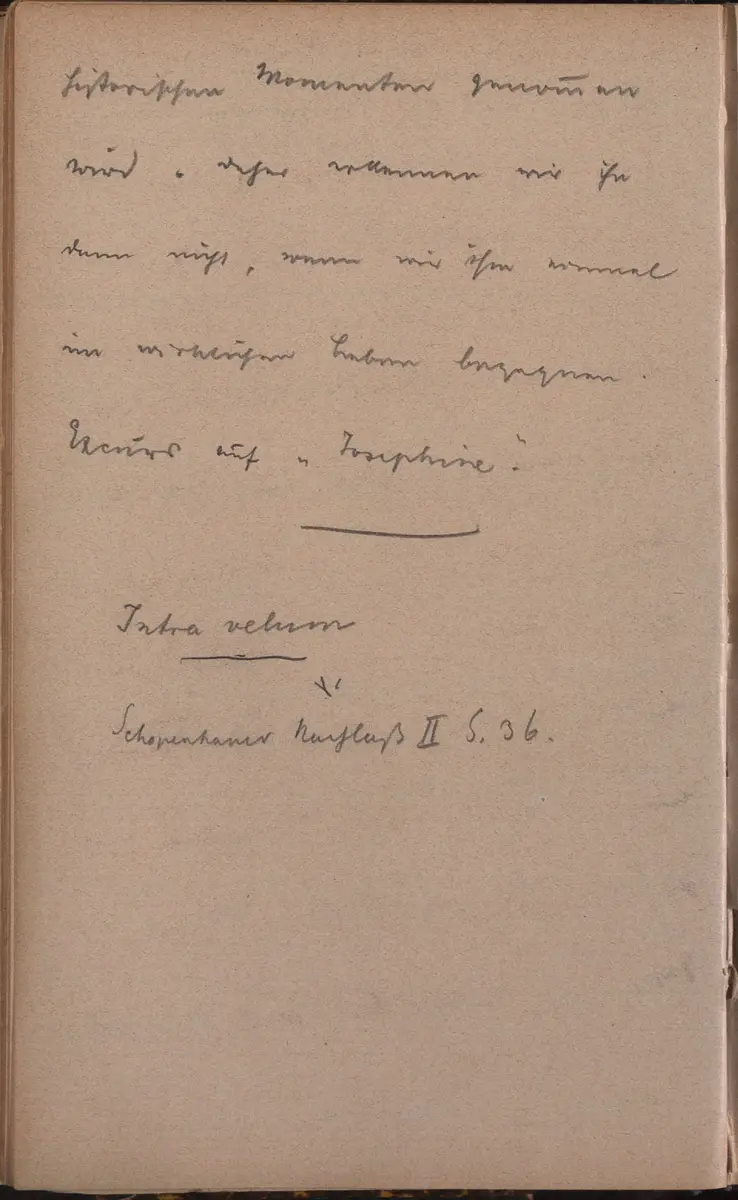 historischen Momenten genom̅en
wird. daher erkennen wir ihn
dann nicht, wenn wir ihm einmal
im wirklichen Leben begegnen.
Excurs auf „Josephine".
Intra velum
Schopenhauer Nachlaß II S. 36.